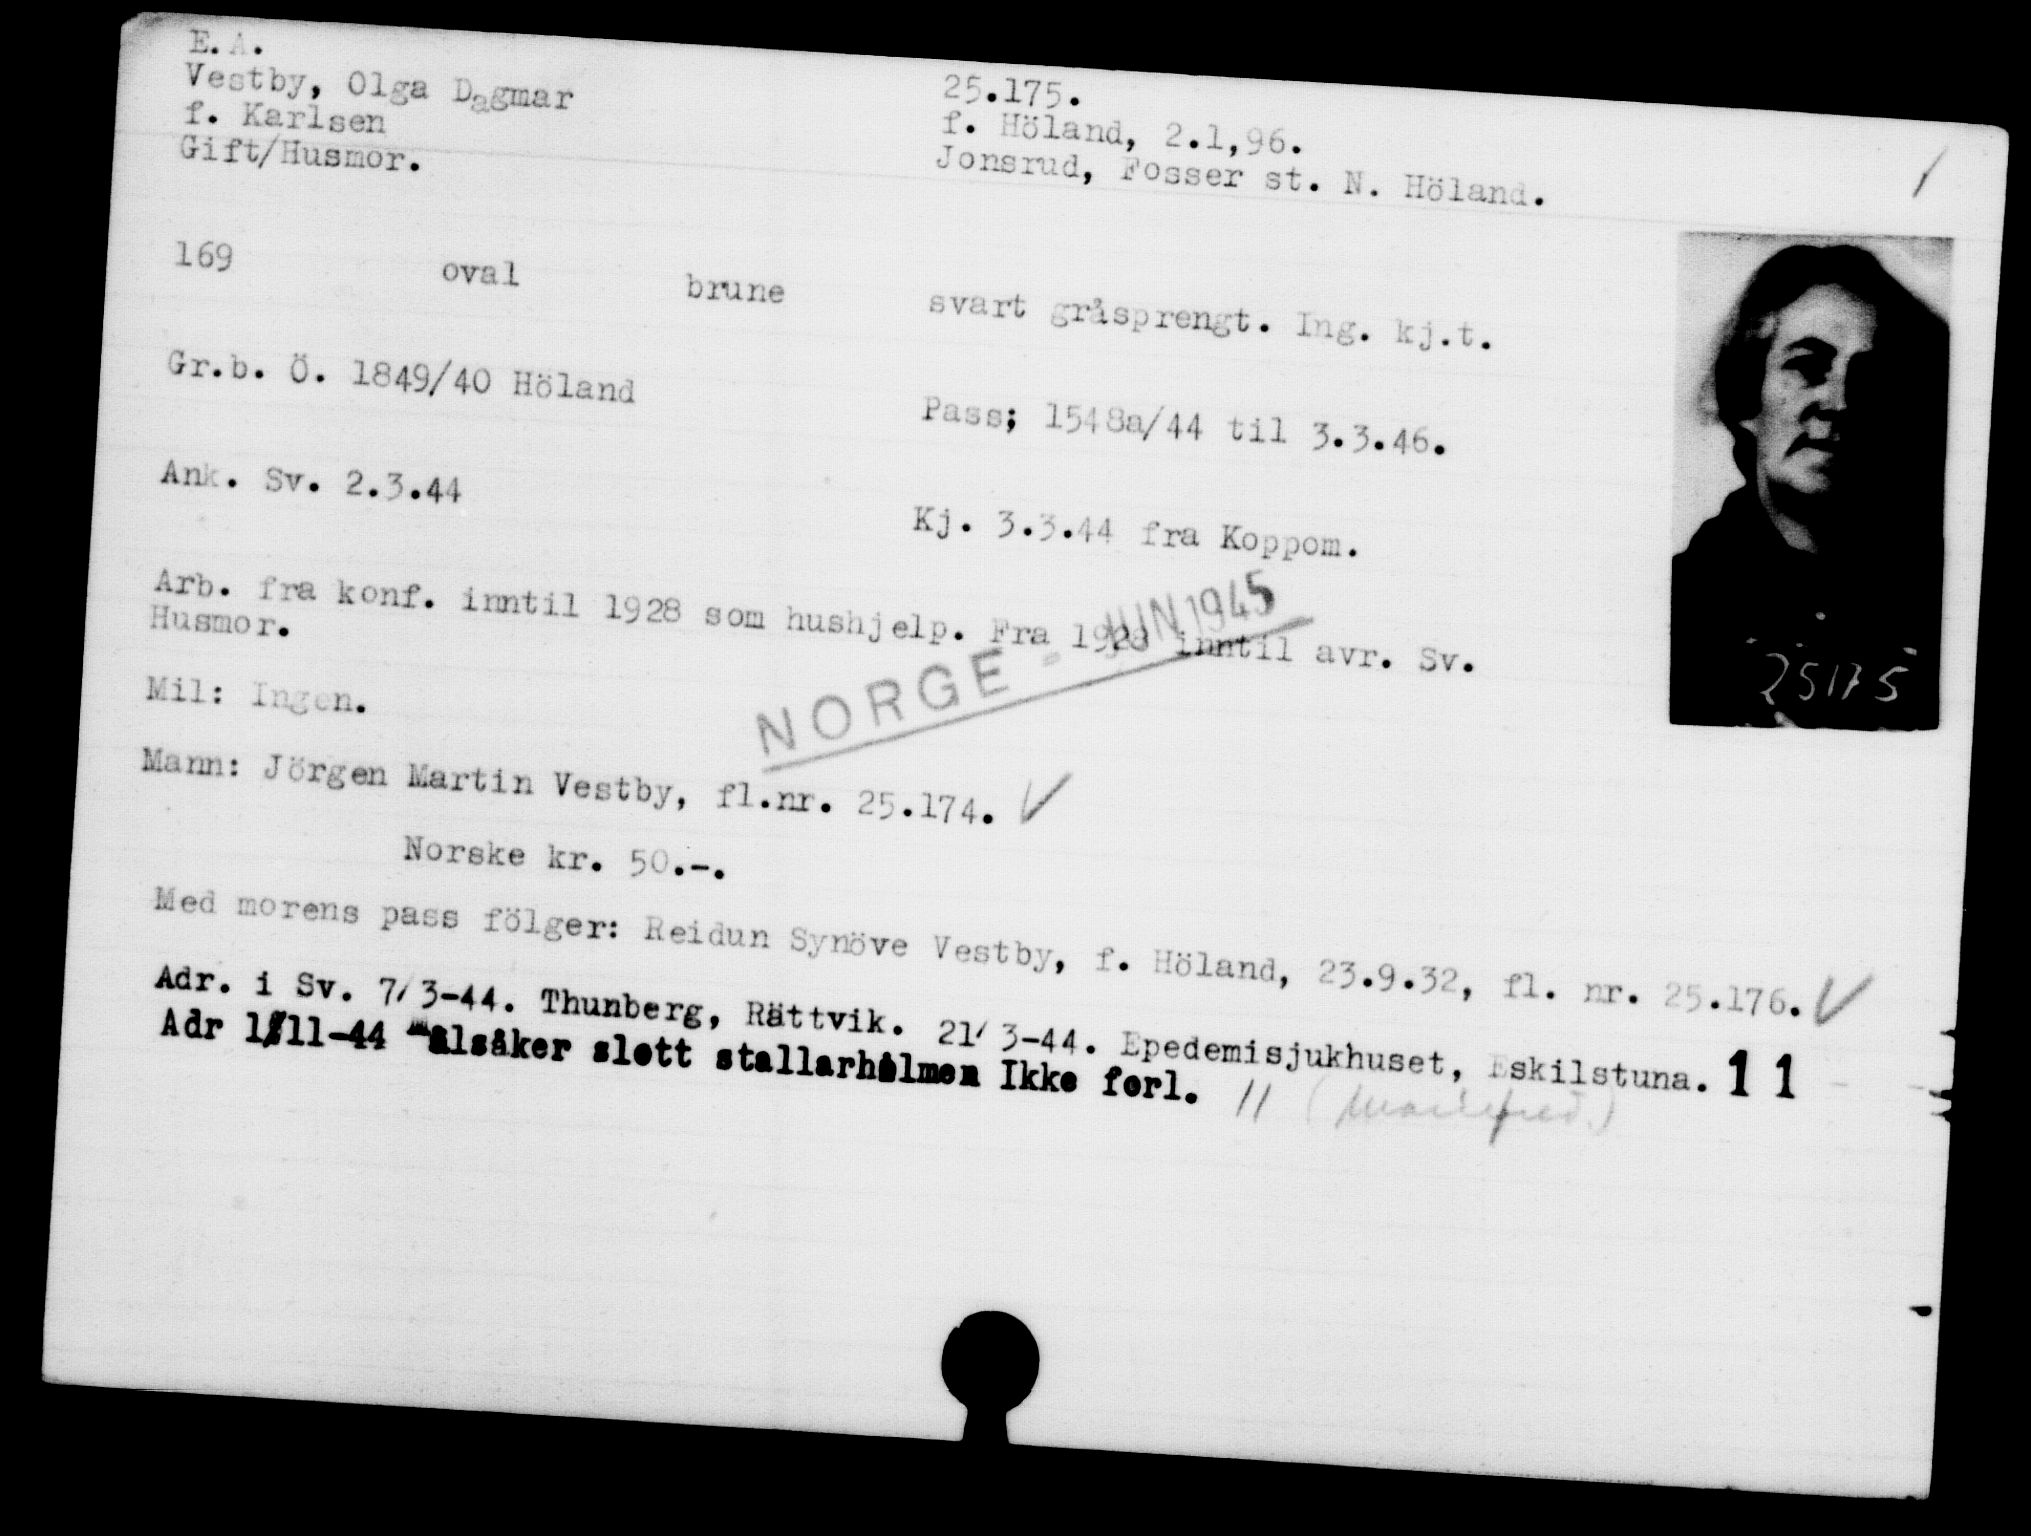 E.A.
Vestby, Olga Dagmar
f. Karlsen
Gift/Husmor.
25.175.
f. Höland, 2.1,96.
Jonsrud, Fosser st. N. Höland.
169 oval brune svart gråsprengt. Ing. kj.t.
Gr.b. Ö. 1849/40 Höland
Pass; 1548a/44 til 3.3.46.
Ank. Sv. 2.3.44
Kj. 3.3.44 fra Koppom.
Arb. fra konf. inntil 1928 som hushjelp. Fra 1928 inntil avr. Sv.
Husmor.
NORGE - JUN 1945
Mil: Ingen.
Mann: Jörgen Martin Vestby, fl.nr. 25.174.
Norske kr. 50.-.
Med morens pass fölger: Reidun Synöve Vestby, f. Höland, 23.9.32, fl. nr. 25.176.
Adr. i Sv. 7/3-44. Thunberg, Rättvik. 21/3-44. Epedemisjukhuset, Eskilstuna. 11
Adr 1/11-44 mälsåker slott stallarhölmen Ikke forl. //
25175